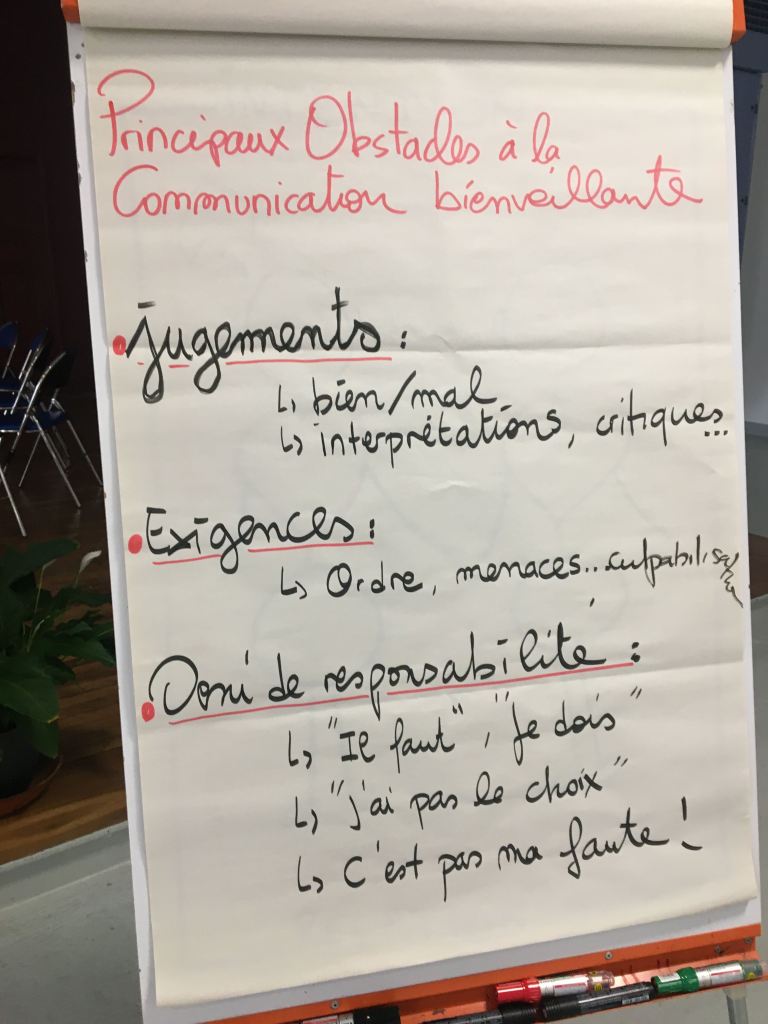 Principaux Obstacles à la
Communication bienveillante
• jugements :
↳ bien/mal
↳ interprétations, critiques...
• Exigences :
↳ Ordre, menaces...
• Déni de responsabilité :
↳ "Il faut", "je dois"
↳ "j'ai pas le choix"
↳ C'est pas ma faute !